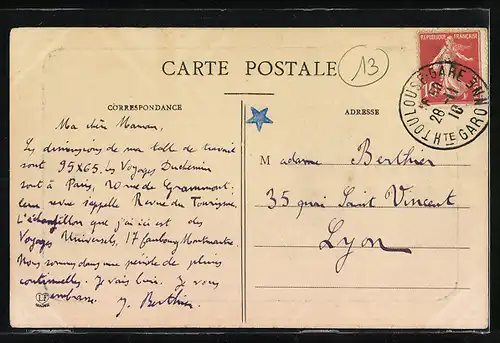 CARTE POSTALE
13
REPUBLIQUE FRANÇAISE
10
TOULOUSE-GARE
28
16
HTE GARONNE
CORRESPONDANCE
ADRESSE
Ma chère Maman,
Les dimensions de ma table de travail
sont 95x65. Les Voyages Duchemin
sont à Paris, 20 rue de Grammont;
leur revue s'appelle Revue du Tourisme.
L'échantillon que j'ai ici est des
Voyages Universels, 17 faubourg Montmartre.
Nous sommes dans une période de pluies
continuelles. Je vais bien. Je vous
embrasse. J. Berthier
Madame Berthier
35 quai Saint Vincent
Lyon